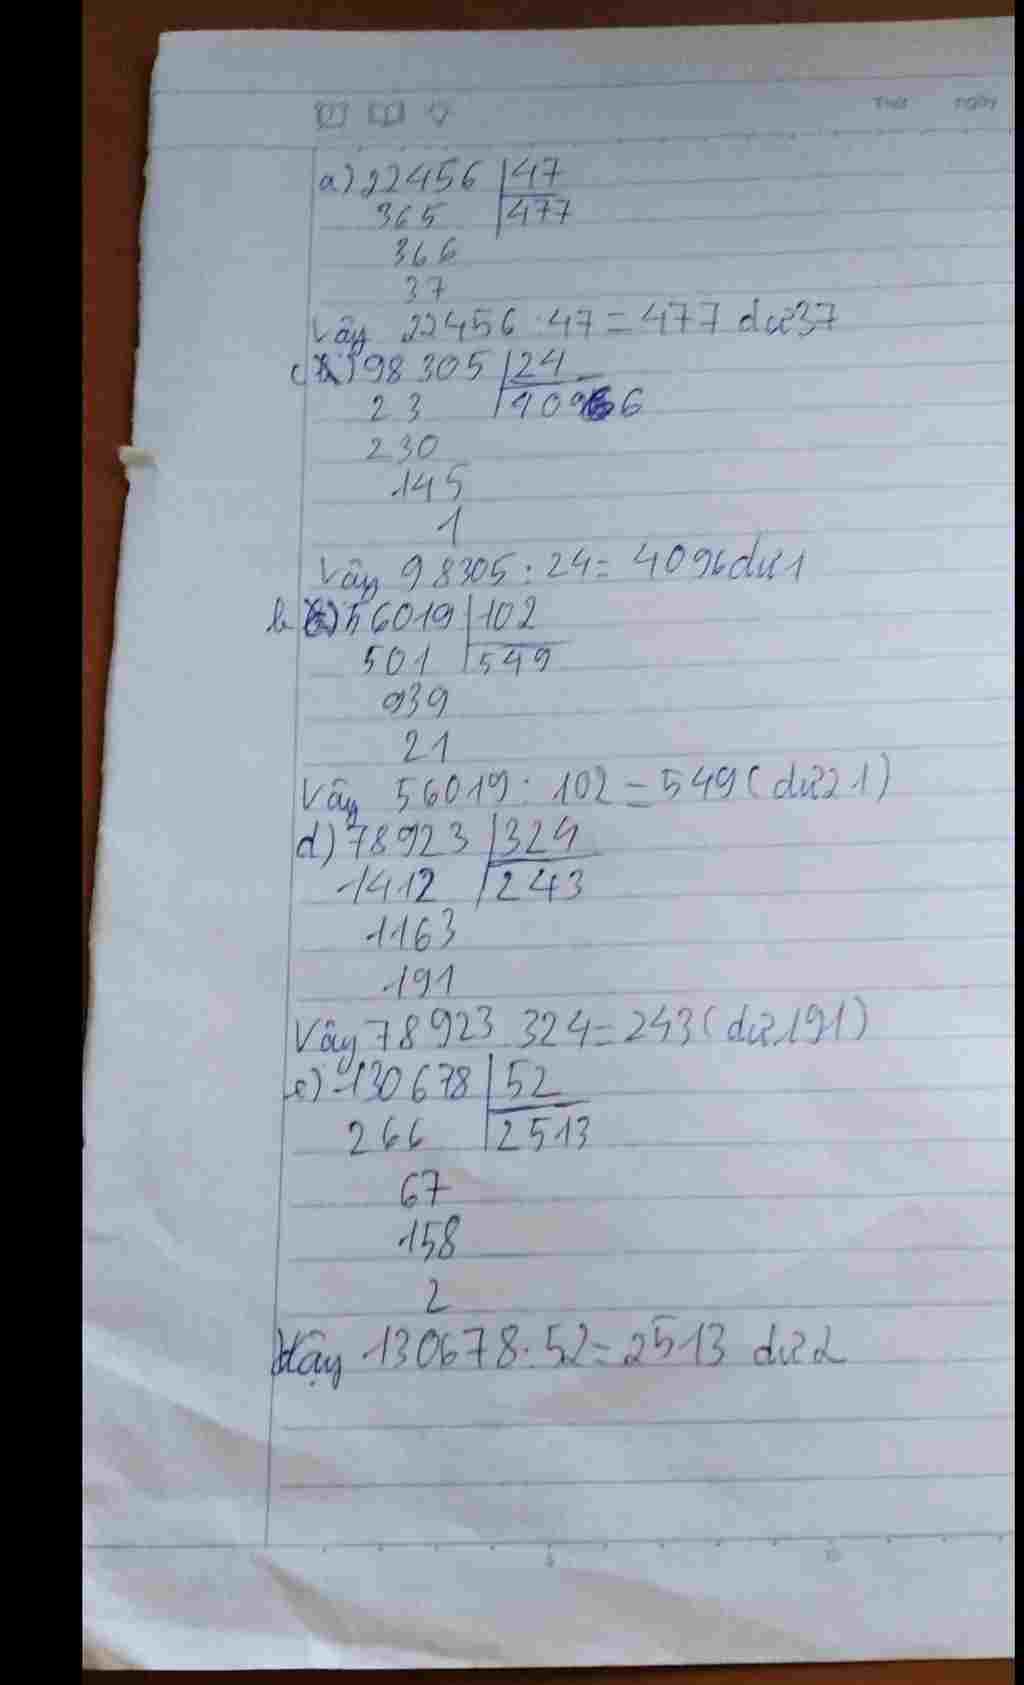 Thứ ngày
a) 22456 47
365 477
366
37
Vậy 22456 : 47 = 477 dư 37
c) 98305 24
23 4096
230
145
1
Vậy 98305 : 24 = 4096 dư 1
b) 56019 102
501 549
939
21
Vậy 56019 : 102 = 549 ( dư 21 )
d) 78923 324
1412 243
1163
191
Vậy 78923 324 = 243 ( dư 191 )
e) 130678 52
266 2513
67
158
2
Vậy 130678 : 52 = 2513 dư 2